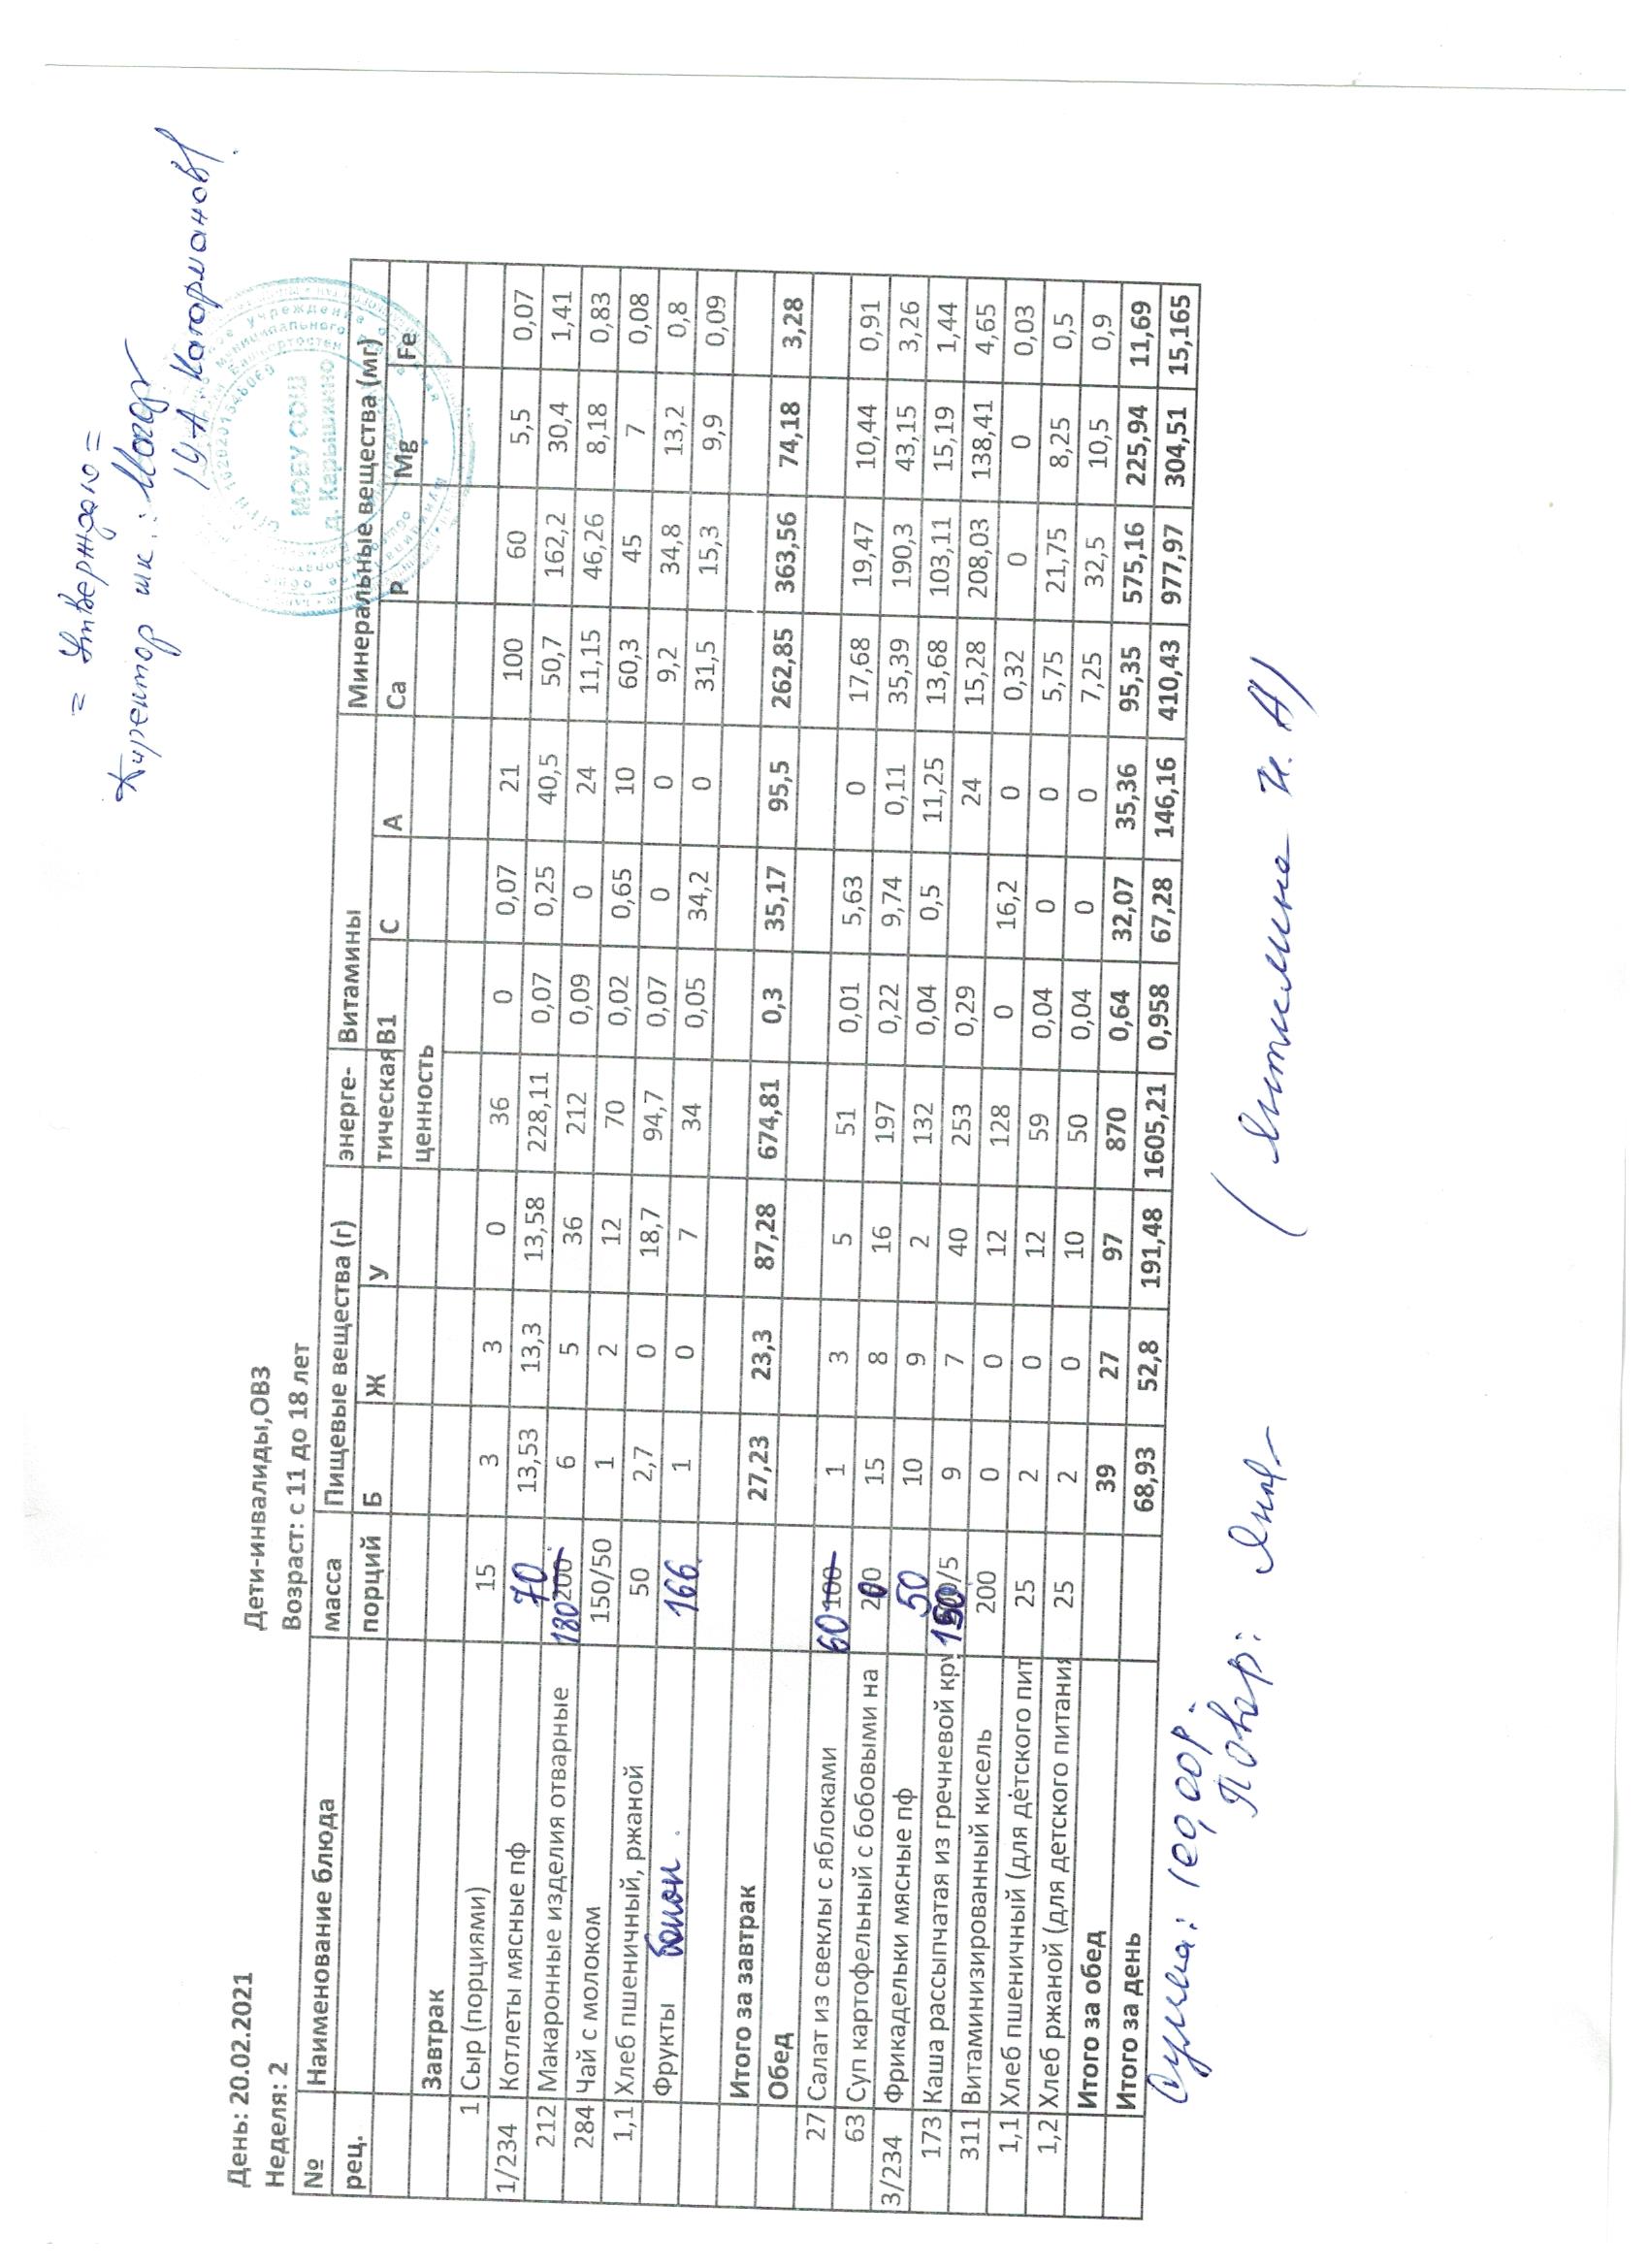 = Утверждаю =
Директор шк.:
МОБУ СОШ
д. Карышкино
День: 20.02.2021 Дети-инвалиды,ОВЗ
Неделя: 2 Возраст: с 11 до 18 лет
№ Наименование блюда масса Пищевые вещества (г) энерге- Витамины Минеральные вещества (мг)
рец. порций Б Ж У тическая В1 С А Са Р Mg Fe
ценность
Завтрак
1 Сыр (порциями) 15 3 3 0 36 0 0,07 21 100 60 5,5 0,07
1/234 Котлеты мясные пф 70 13,53 13,3 13,58 228,11 0,07 0,25 40,5 50,7 162,2 30,4 1,41
212 Макаронные изделия отварные 180 200 6 5 36 212 0,09 0 24 11,15 46,26 8,18 0,83
284 Чай с молоком 150/50 1 2 12 70 0,02 0,65 10 60,3 45 7 0,08
1,1 Хлеб пшеничный, ржаной 50 2,7 0 18,7 94,7 0,07 0 0 9,2 34,8 13,2 0,8
Фрукты банан. 166. 1 0 7 34 0,05 34,2 0 31,5 15,3 9,9 0,09
Итого за завтрак 27,23 23,3 87,28 674,81 0,3 35,17 95,5 262,85 363,56 74,18 3,28
Обед
27 Салат из свеклы с яблоками 60 100 1 3 5 51 0,01 5,63 0 17,68 19,47 10,44 0,91
63 Суп картофельный с бобовыми на 200 15 8 16 197 0,22 9,74 0,11 35,39 190,3 43,15 3,26
3/234 Фрикадельки мясные пф 50 10 9 2 132 0,04 0,5 11,25 13,68 103,11 15,19 1,44
173 Каша рассыпчатая из гречневой кру 150/5 9 7 40 253 0,29 24 15,28 208,03 138,41 4,65
311 Витаминизированный кисель 200 0 0 12 128 0 16,2 0 0,32 0 0 0,03
1,1 Хлеб пшеничный (для детского пит 25 2 0 12 59 0,04 0 0 5,75 21,75 8,25 0,5
1,2 Хлеб ржаной (для детского питания 25 2 0 10 50 0,04 0 0 7,25 32,5 10,5 0,9
Итого за обед 39 27 97 870 0,64 32,07 35,36 95,35 575,16 225,94 11,69
Итого за день 68,93 52,8 191,48 1605,21 0,958 67,28 146,16 410,43 977,97 304,51 15,165
Сумма:
Повар: